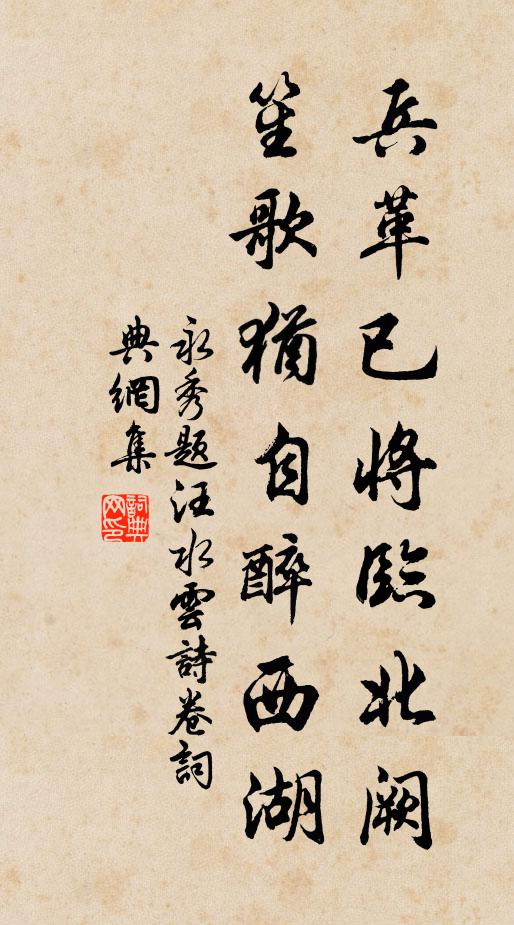 兵革已將臨北闕
笙歌猶自醉西湖
永秀題汪水雲詩卷詞
典網集
詞典
网印